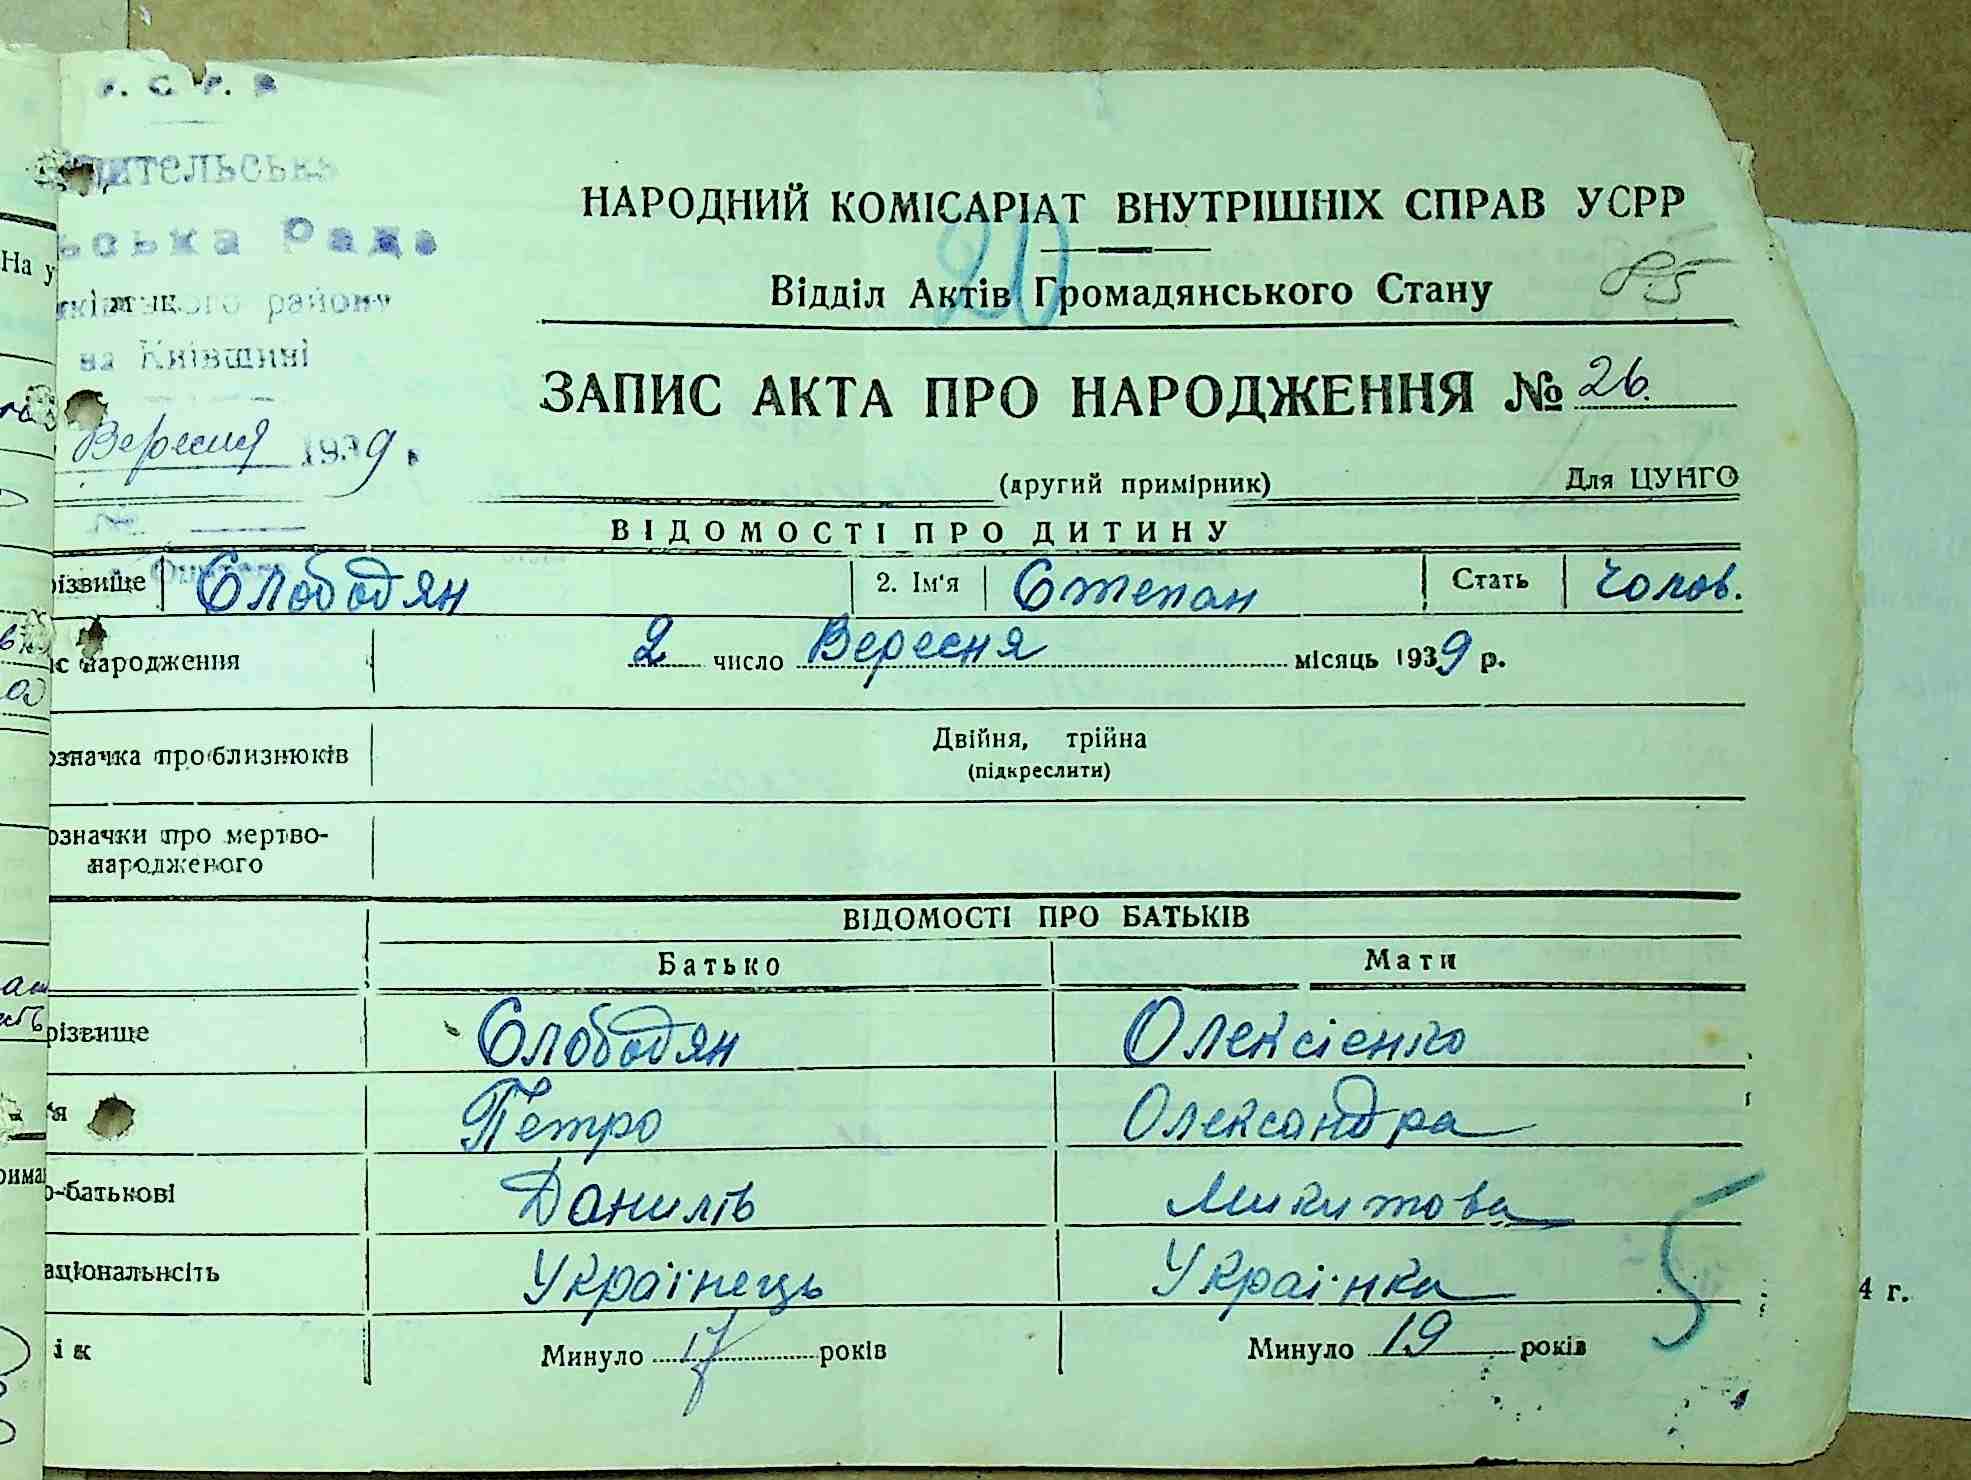 У. С. Р. Р
ительська
ська Рада
ківського району
на Київщині
Вересня 1939.
НАРОДНИЙ КОМІСАРІАТ ВНУТРІШНІХ СПРАВ УСРР
20
Відділ Актів Громадянського Стану
85
ЗАПИС АКТА ПРО НАРОДЖЕННЯ № 26.
(другий примірник) Для ЦУНГО
ВІДОМОСТІ ПРО ДИТИНУ
різвище Слободян 2. Ім'я Степан Стать Чолов.
ас народження 2 число Вересня місяць 1939 р.
означка про близнюків Двійня, трійна
(підкреслити)
означки про мертво-
народженого
ВІДОМОСТІ ПРО БАТЬКІВ
Батько Мати
різвище Слободян Олексієнко
'я Петро Олександра
о-батькові Данилів Микитова
аціональнсіть Українець Українка
5
ік Минуло 17 років Минуло 19 років
На у
4 г.